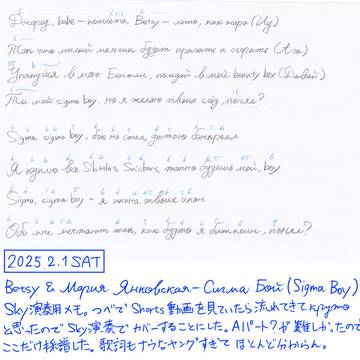 babe – Betsy – как жара
Так что милый мальчик будет прыгать и сгорать (Ага)
в мою Бентли, полезай в мой beauty box (Давай)
Ты мой sigma boy, но я желаю твоих понял?
Sigma, sigma boy, на
Я куплю все Skittles, Snickers, будешь мой, boy
Sigma, sigma boy – я икона твоих икон
Обо мне мечтают так, как будто я биткоин, понял?
2025.2.1 SAT
Betsy & Мария Янковская – Сигма Бой (Sigma Boy)
Sky演奏用メモ。つべでShorts動画を見ていたら流れてきてкруто
と思ったのでSky演奏でカバーすることにした。Aパート?が難しかったので
ここだけ採譜した。歌詞もナウなヤングすぎてほとんど分からん。